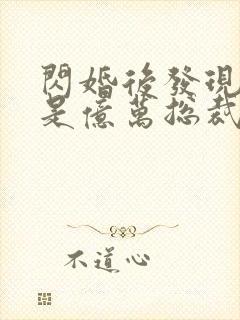 閃婚後發現
是億萬總裁
不道心